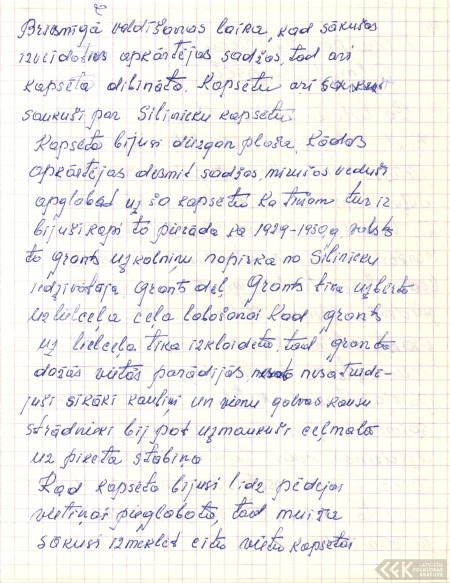 Briesmīgā valdīšanas laikā, kad sākušos
izveidoties apkārtējas sadžas, tad arī
kapsēta dibināta. Kapsētu arī
saukuši par Silinieku kapsētu.
Kapsēta bijusi diezgan plaša. Kādas
apkārtējas desmit sadžas, mirušos veduši
apglabāt uz šo kapsētu. Ka tiešām tur ir
bijuši kapi to pierāda ka 1929-1930.g. valsts
to grants uzkalniņu nopirka no Silinieku
iedzīvotāja grants dēļ. Grants tika uzbērta
uz lielceļa ceļa labošanai. Kad grants
uz lielceļa tika izkliedēta, tad grantā
dažās vietās parādijās nesatrūdē-
juši sīkāki kauliņi un vienu galvas kausu
strādnieki bij pat uzmaukuši ceļmalā
uz piketa stabiņa
Kad kapsēta bijusi līdz pēdejai
vietiņai pieglabāta, tad muiža
sākusi izmeklēt citu vietu kapsētai
LATVIEŠU
FOLKLORAS
KRĀTUVE